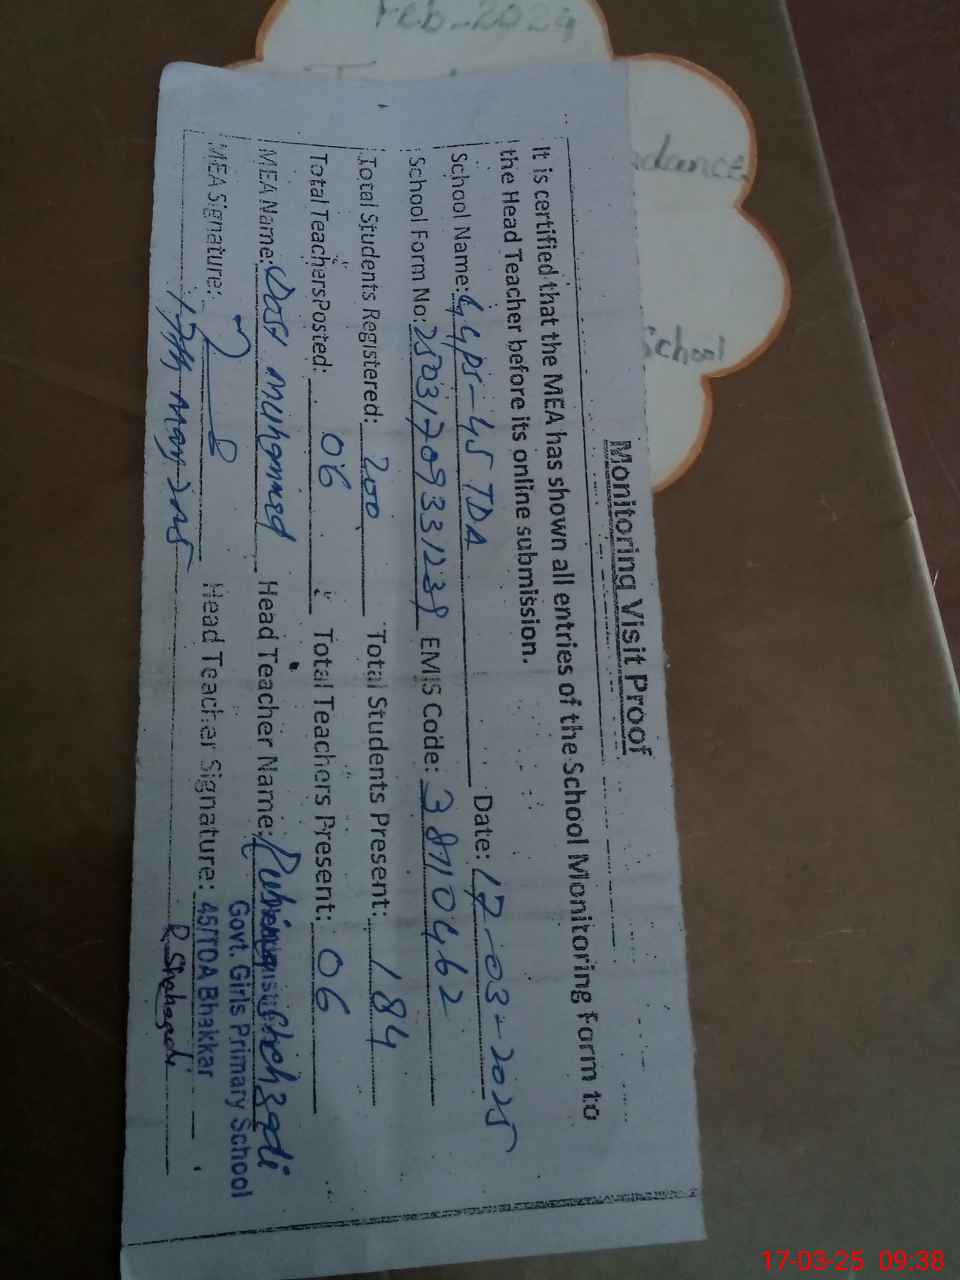 Feb-2024
dance
School
Monitoring Visit Proof
It is certified that the MEA has shown all entries of the School Monitoring Form to
the Head Teacher before its online submission.
School Name: GGPS-45 TDA Date: 17-03-2025
School Form No: 25031709331239 EMIS Code:
Total Students Registered: 200 Total Students Present: 184
Total Teachers Posted: 06 Total Teachers Present: 06
MEA Name: Dost Muhammad Head Teacher Name: Rubina Shehzadi
Govt. Girls Primary School
MEA Signature: Head Teacher Signature: 45/TDA Bhakkar
R Shehzadi
17-03-25 09:38